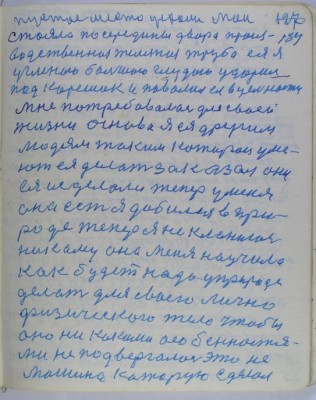 пустое место украли мои 197
стояло посередины двора произ-
водственная желтая труба ея я
ударил
под корешок и повалил ея в
мне потребовалос для своей
жизни основа я ся другим
людям таким которая уме-
ют ся делат заказал они
ся зделали тепер у меня
она ест я добился в при-
роде тепер я не кланялся
никаму она меня научила
как будет надо у природе
делат для своего лично
физического тело чтобы
оно ни какими особенностя-
ми не подвергалос это не
машина которую сделал